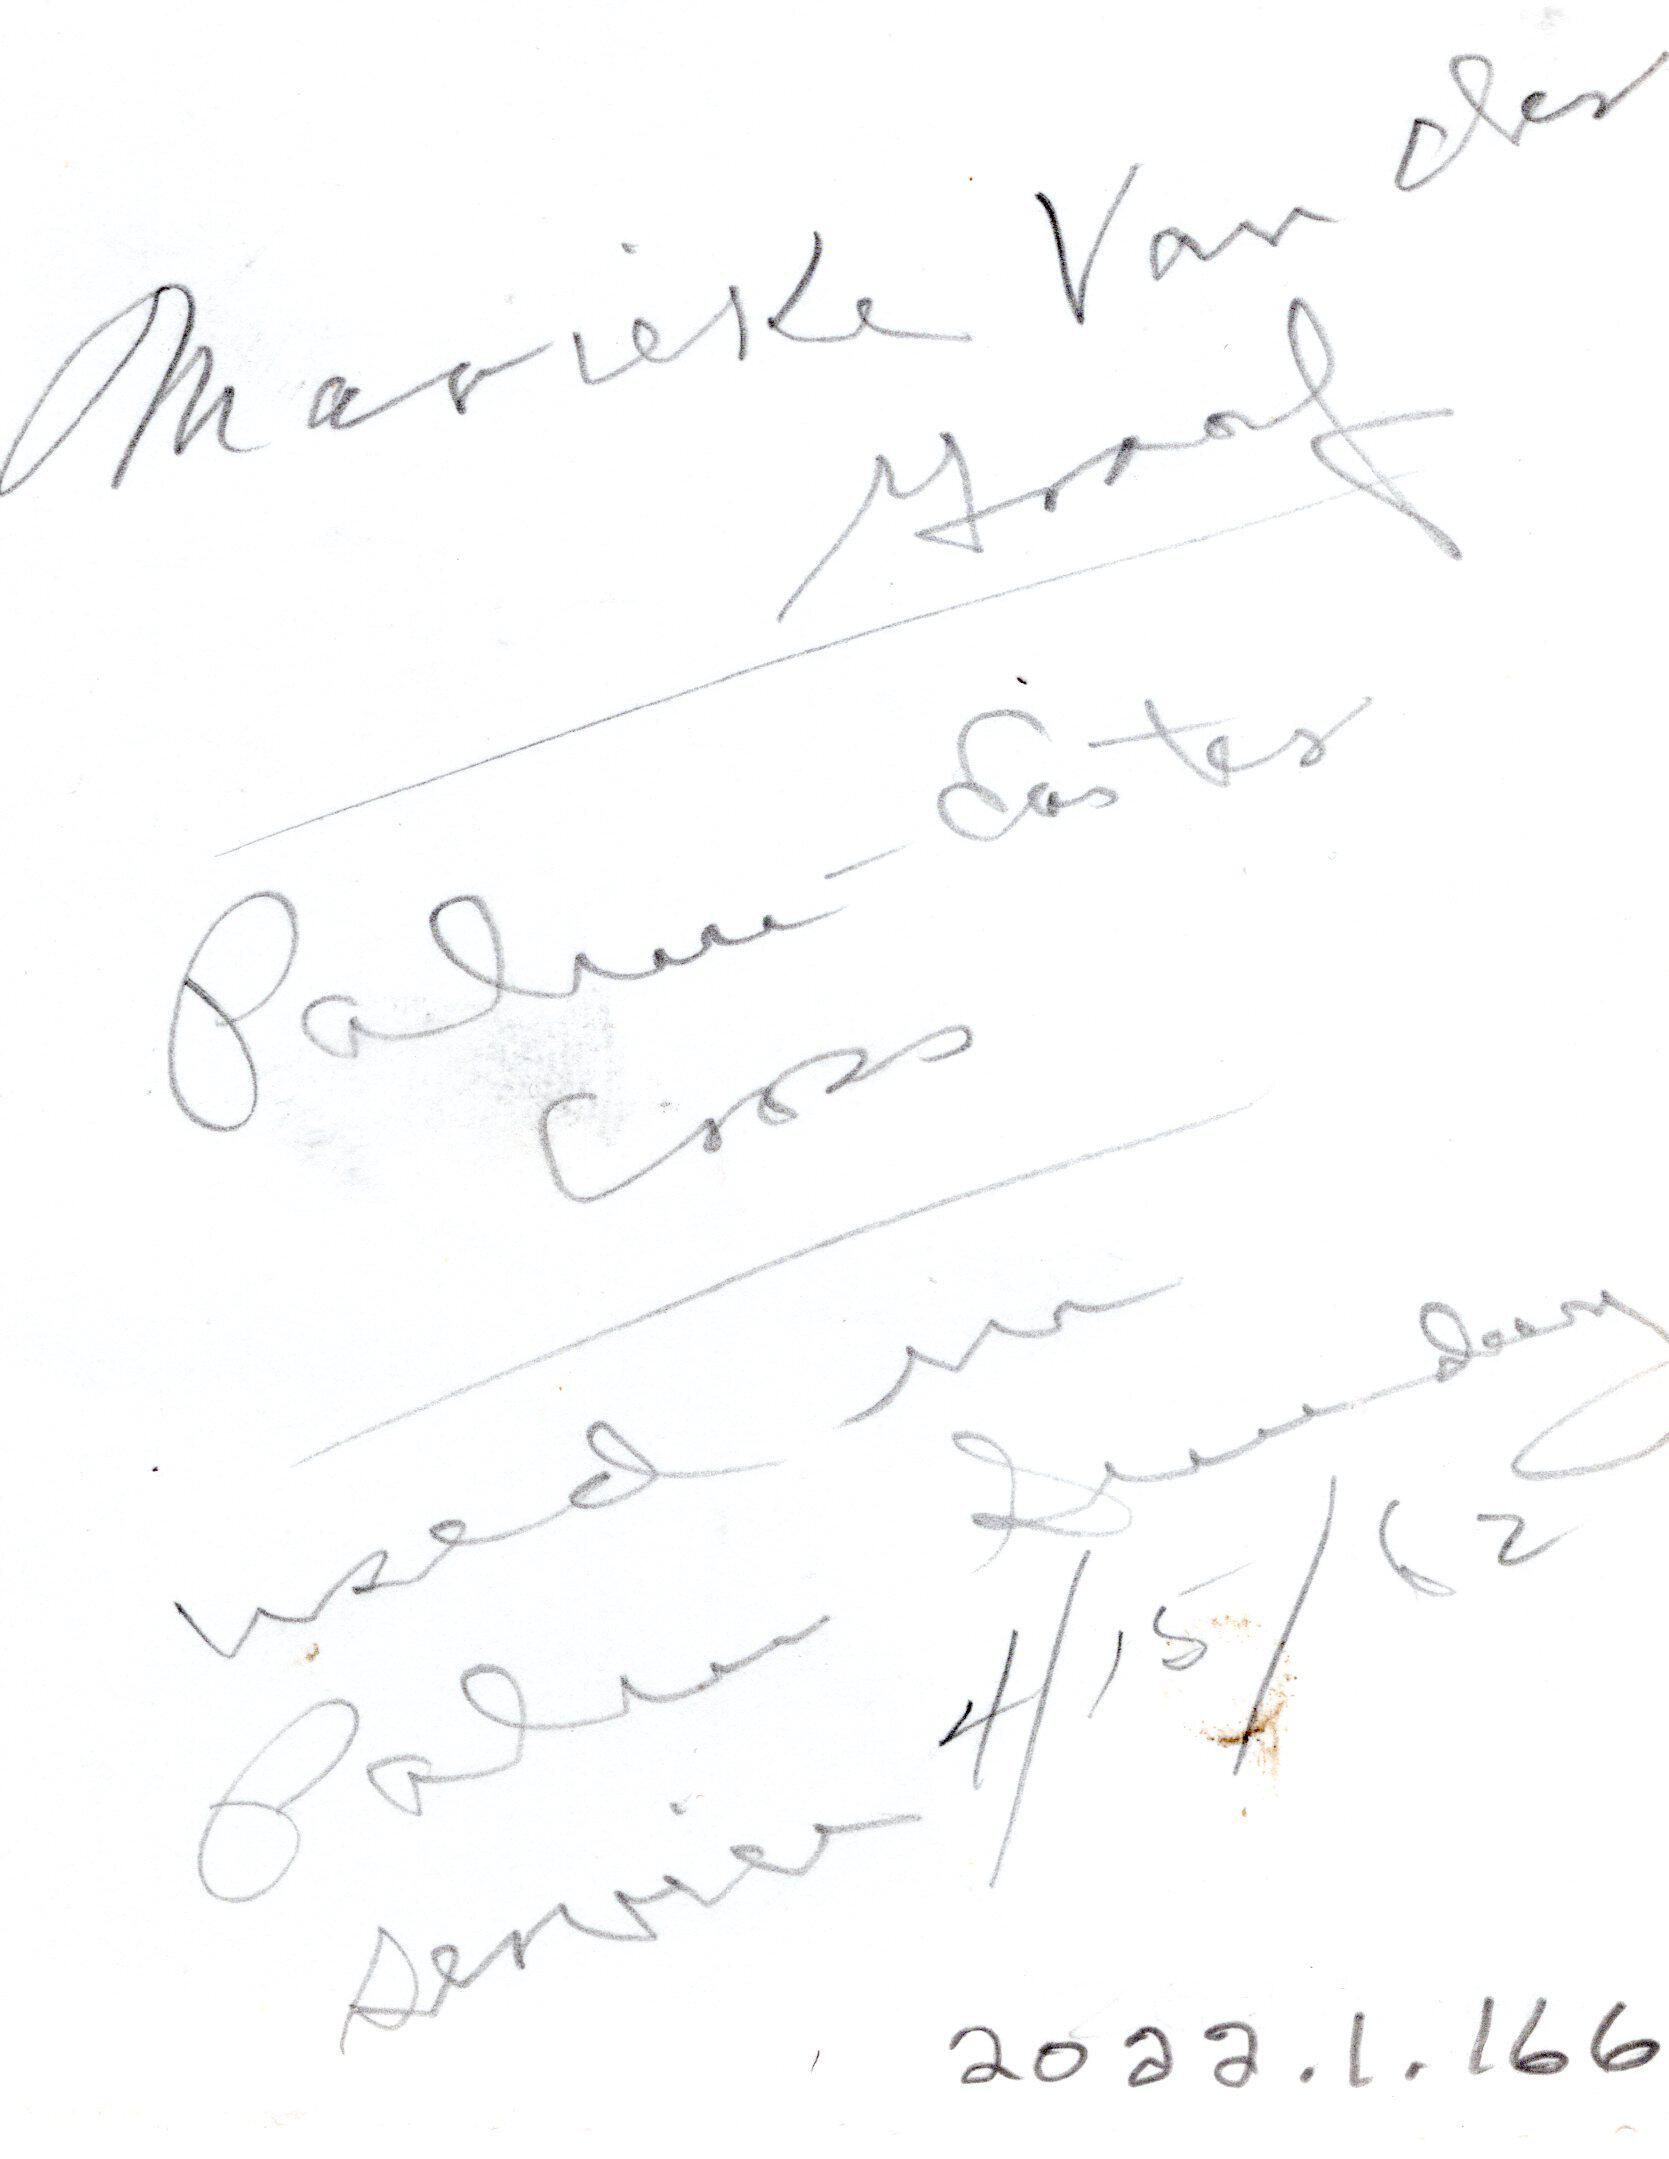 Marieke Van der
Graaf
Palm - Easter
Cross
used in
Palm Sunday
service 4/15/62
2022.1.166